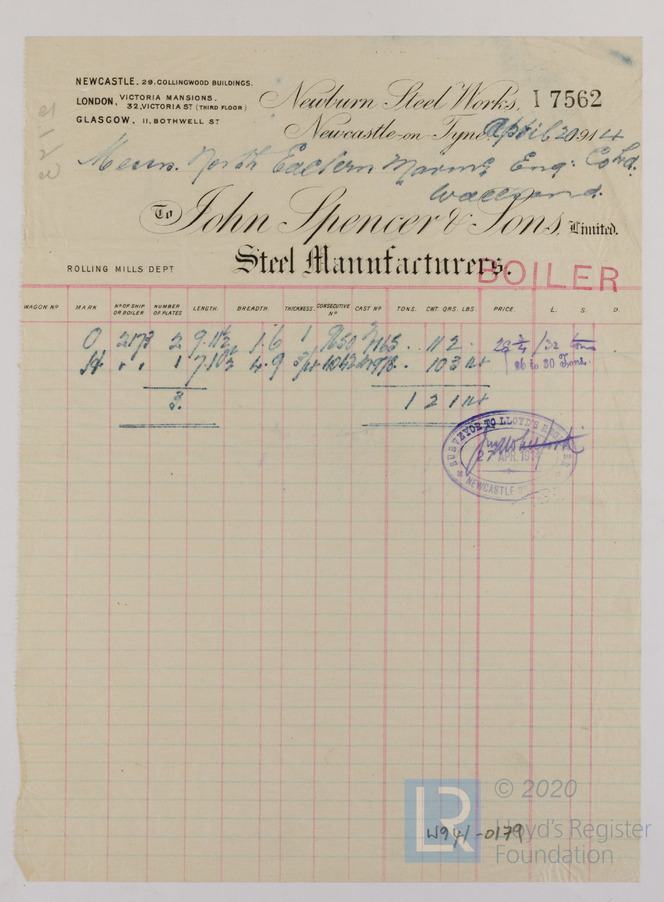 NEWCASTLE. 29. COLLINGWOOD BUILDINGS.
LONDON, VICTORIA MANSIONS. 32, VICTORIA ST (THIRD FLOOR)
GLASGOW. 11, BOTHWELL ST
Newburn Steel Works, I 7562
Newcastle-on-Tyne, April 20 1914
Messrs. North Eastern Marine Eng. Co Ltd.
Wallsend.
To John Spencer & Sons, Limited.
Steel Manufacturers.
ROLLING MILLS DEPT
BOILER
WAGON No MARK No OF SHIP OR BOILER NUMBER OF PLATES LENGTH. BREADTH. THICKNESS. CONSECUTIVE No CAST No TONS. CWT. QRS. LBS. PRICE. L. S. D.
O 2173 2 9. 1.6 1 9650 7165 11 2 28 /32 tons
" " 1 4.9 10 3 14 26 to 30 Tons.
3. 1 2 1 14
SURVEYOR TO LLOYD'S REGISTER
27 APR. 1914
NEWCASTLE
© 2020
LR Lloyd's Register
Foundation
W941-0179